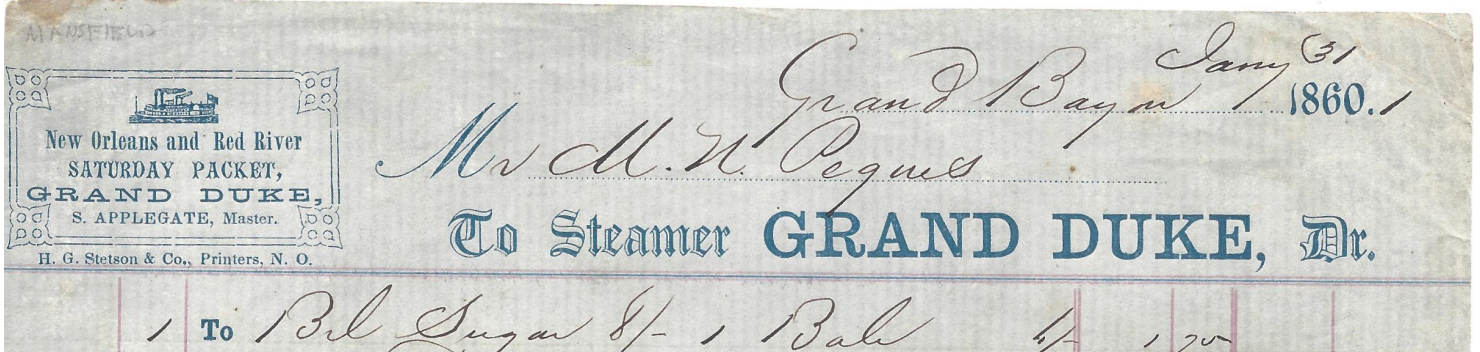 MANSFIELD
New Orleans and Red River
SATURDAY PACKET,
GRAND DUKE,
S. APPLEGATE, Master.
H. G. Stetson & Co., Printers, N. O.
Grand Bayou Jany 31 1860.1
Mr M. N. Pegues
To Steamer GRAND DUKE, Dr.
1 To Brl Sugar 8/- 1 Bale 4/- 1 75